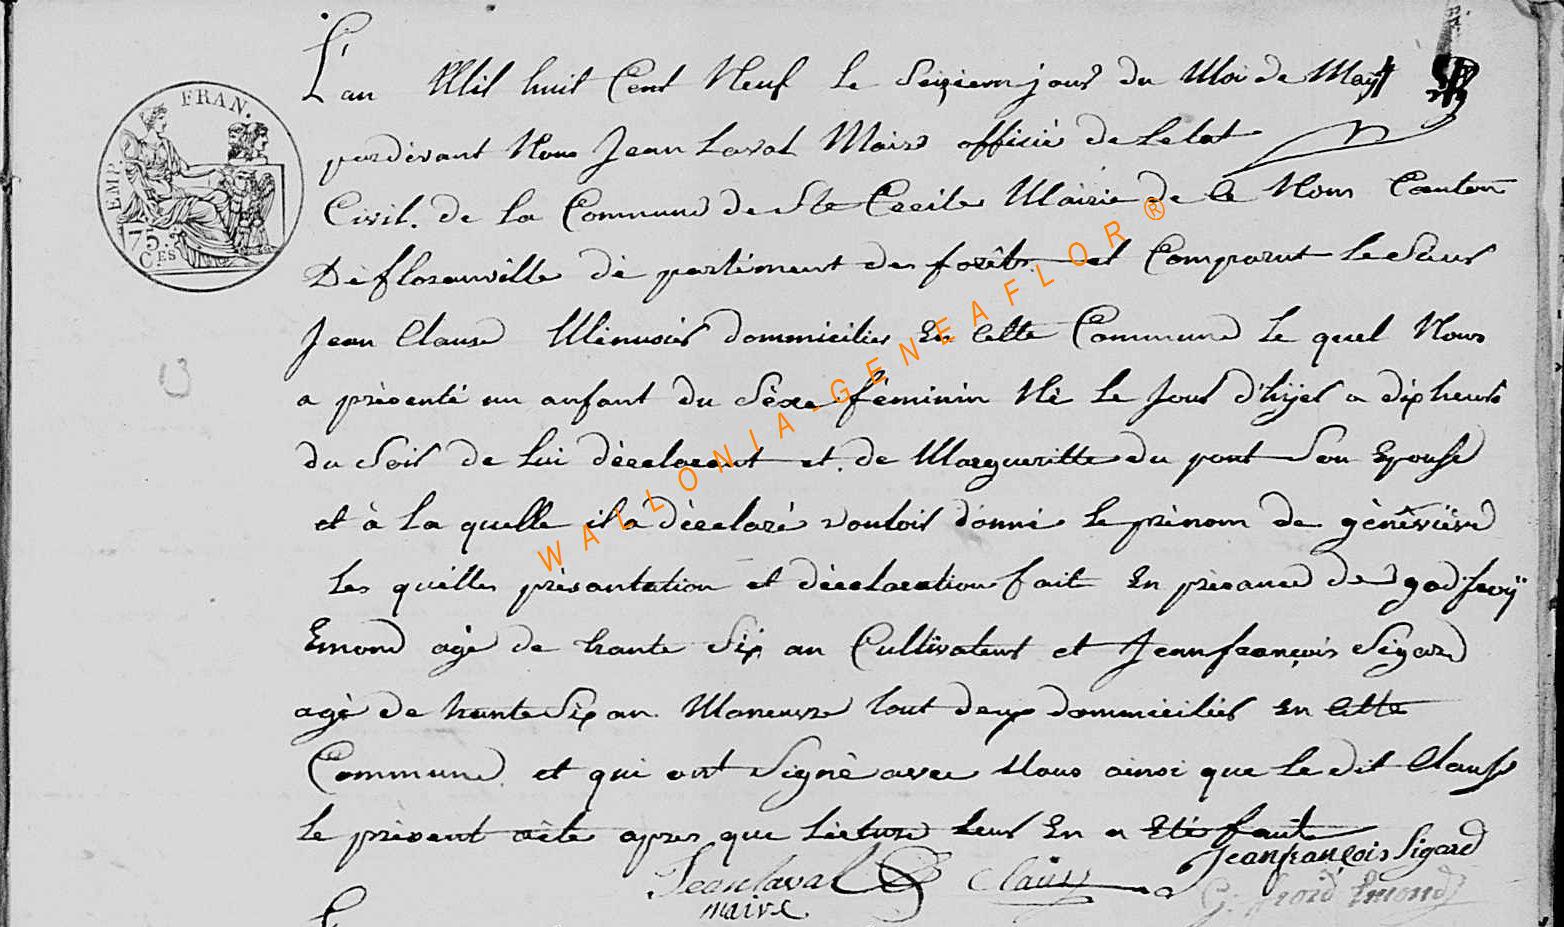 L'an Mil huit Cent Neuf le Seiziem jour du Moi de May
pardevant Nous Jean Laval Maire officié de Letat
EMP. FRAN.
75. CES
Civil. de la Commune de Ste Cecile Mairie de Ce Nom Canton
De florenville dèpartèment des forêts et Comparut le Sieur
Jean Clause Menusier dommicilier En Cette Commune le quel Nous
a prèsentè un anfant du Sèxe fèminin Nè le Jour d'hyer a dix heure
du Soir de lui dèclarant et de Margueritte du pont Son Epouse
et à la quelle il a dèclaré vouloir donné le prènom de gènèviève
les quelles prèsantation et dèclaration fait En prèsance de godfroÿ
Emond agè de trante Six an Cultivateur et Jean françois Sigard
agè de trante Six an Maneuvre tout deux dommiciliér En Cette
Commune et qui ont Signè avec Nous ainsi que le dit Clause
le prèsent acte apres que lècture leur En a Eté faite
Jean laval Claüse Jean françois Sigard
maire G. froid Emond
WALLONIA-GENEAFLOR ®
13